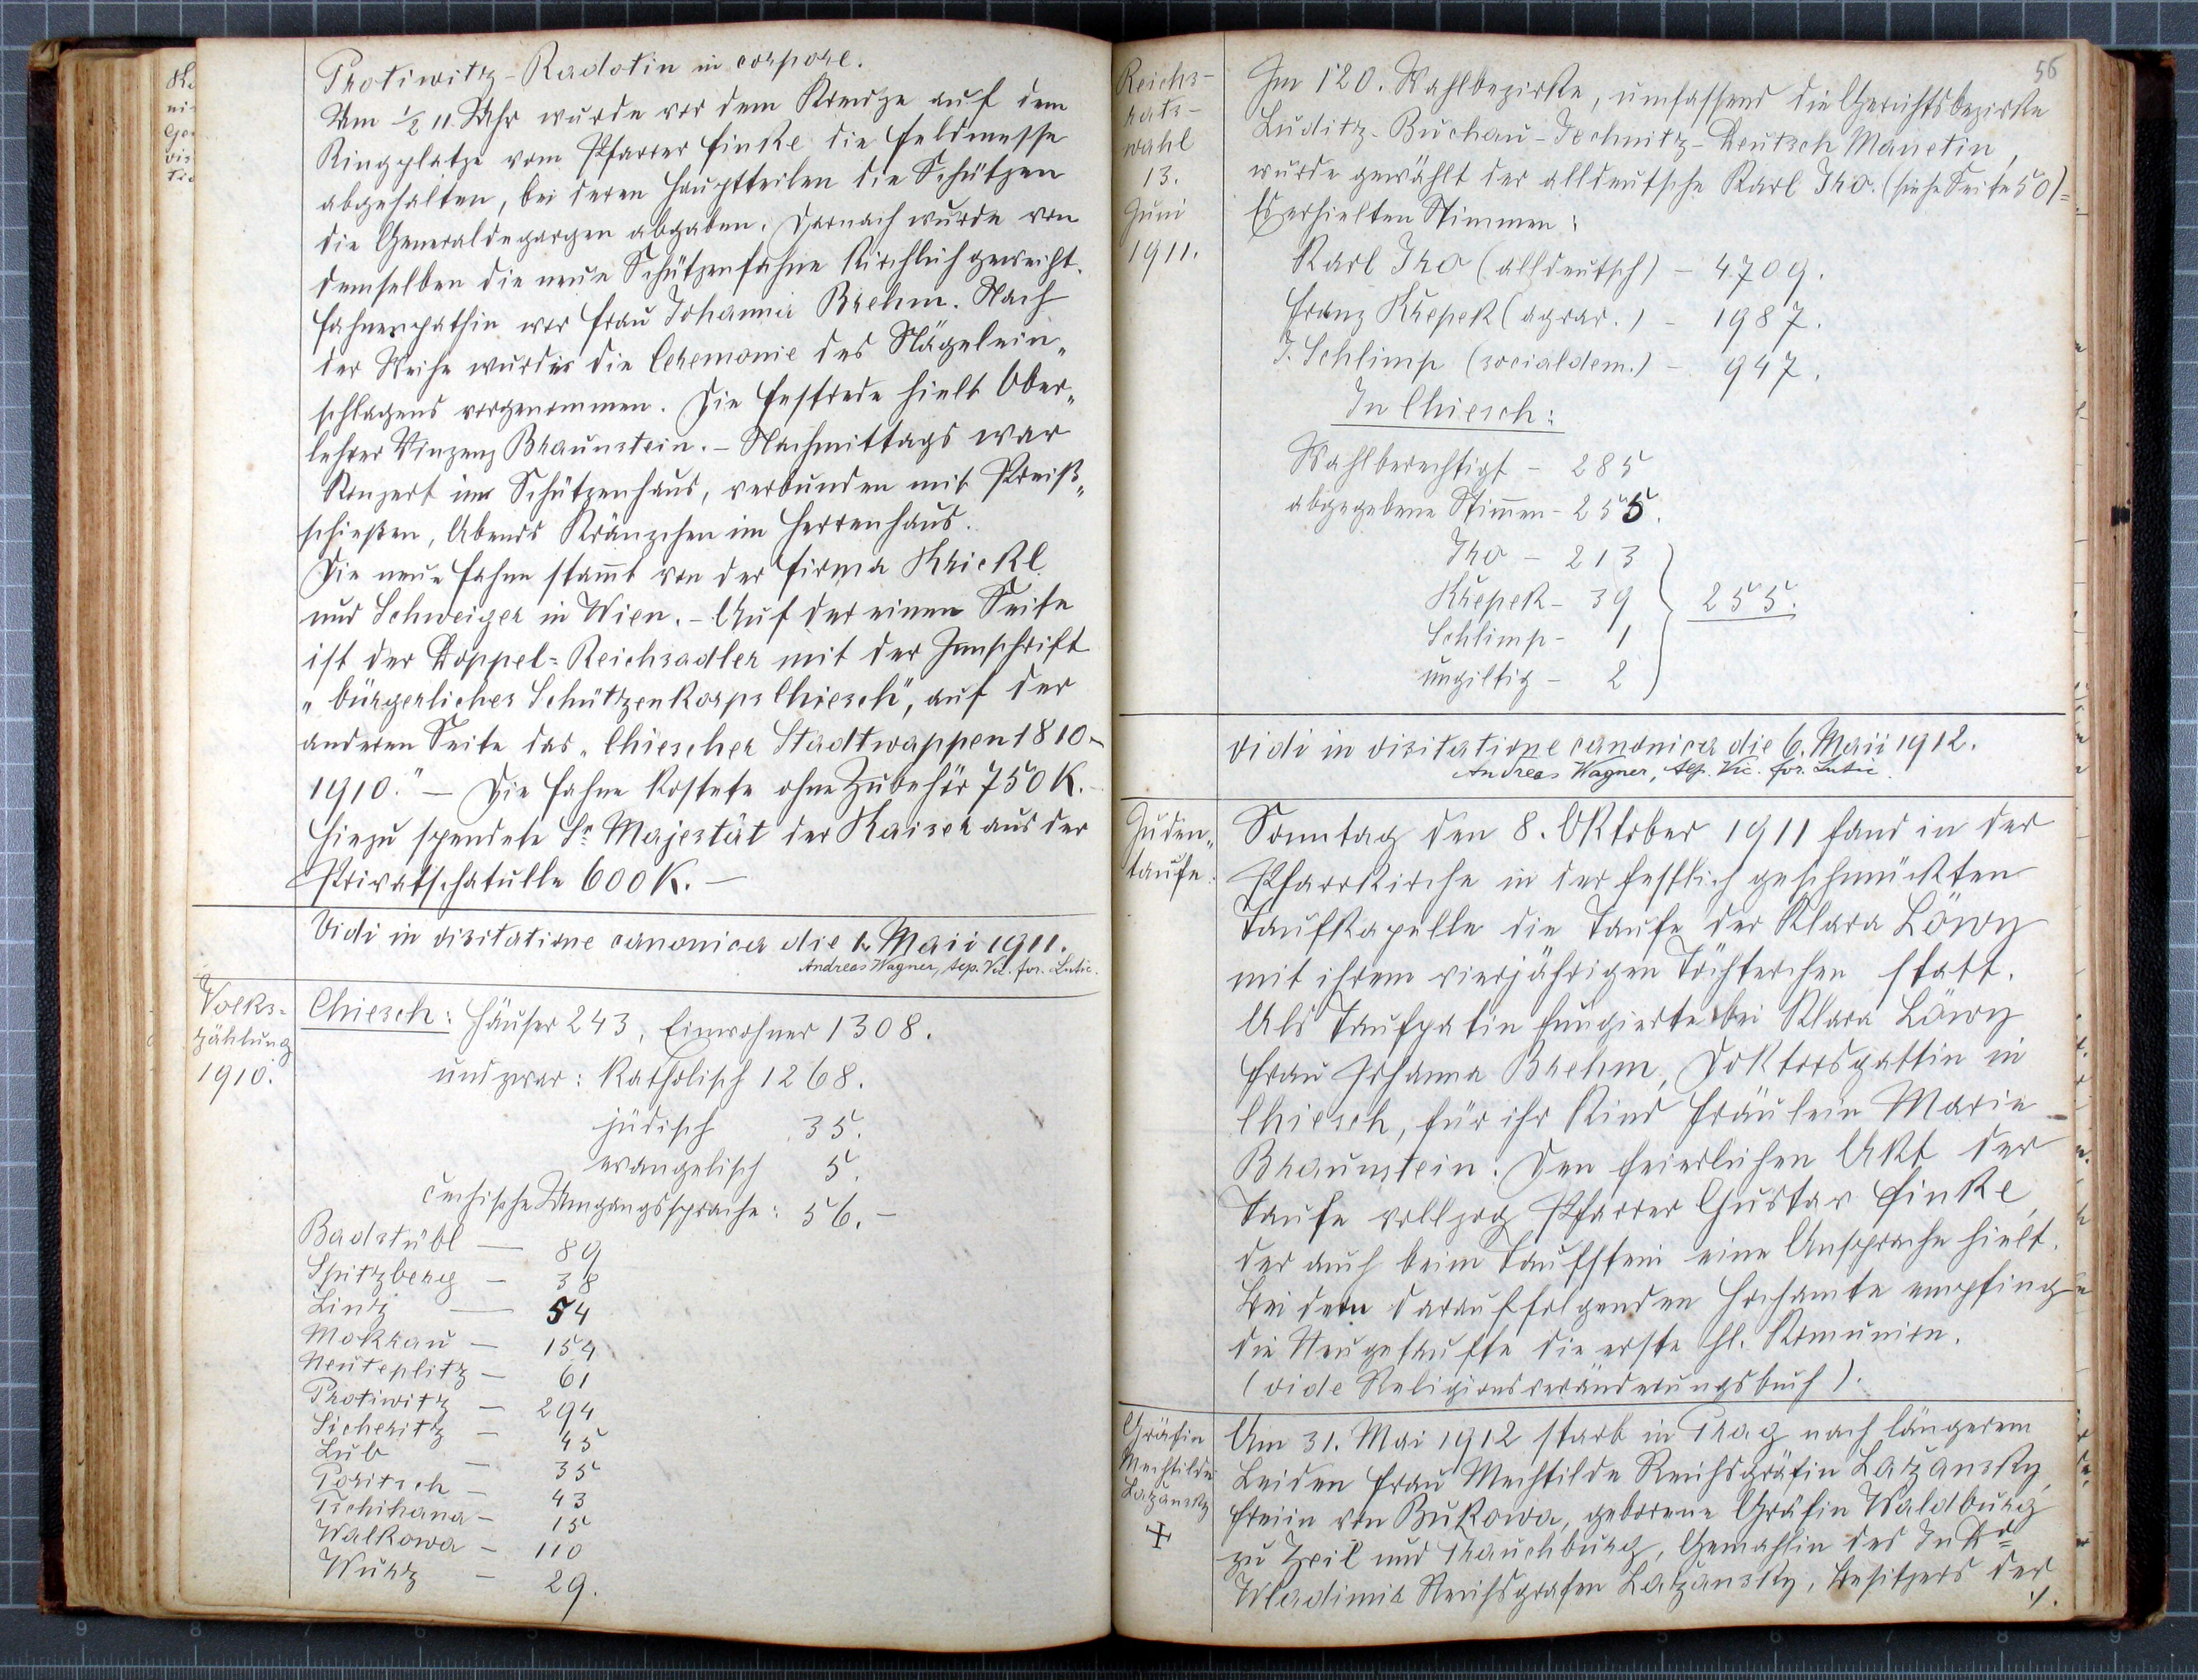 Protiwitz-Radotin in corpore.
Um ½ 11 Uhr wurde vor dem Kreuze auf dem
Ringplatze vom Pfarrer Finke die Feldmesse
abgehalten, bei deren Hauptteilen die Schützen
die Generaldechargen abgaben. Darnach wurde von
demselben die neue Schützenfahne kirchlich geweiht.
Fahnenpathin war Frau Johanna Brehm. Nach
der Weihe wurde die Ceremonie des Nägelein„
schlagens vorgenommen. Die Festrede hielt Ober„
lehrer Vinzenz Braunstein. – Nachmittags war
Konzert im Schützenhaus, verbunden mit Preiß„
schießen, Abends Kränzchen im Herrenhaus.
Die neue Fahne stam̅t von der Firma Krickl
und Schweiger in Wien. – Auf der einen Seite
ist der Doppel-Reichsadler mit der Innschrift
„bürgerliches Schützenkorps Chiesch", auf der
anderen Seite das „Chiescher Stadtwappen 1810–
1910." – Die Fahne kostete ohne Zubehör 750 K. –
Hiezu spendete Sr Majestät der Kaiser aus der
Privatschatulle 600 K. –
Vidi in visitatione canonica die 1. Maii 1911.
Andreas Wagner, Aep. Vic. for. Lutic.
Volks-
zählung
1910.
Chiesch: Häuser 243, Einwohner 1308.
und zwar: katholisch 1268.
jüdisch 35.
evangelisch 5.
čechische Umgangssprache: 56. –
Badstübl — 89
Spitzberg – 38
Lintz — 54
Mokrau – 154
Neuteplitz – 61
Protiwitz – 294
Sicheritz – 45
Lub – 35
Poritsch – 43
Tschihana – 15
Walkowa – 110
Wurz – 29.
56
Reichs-
rats-
wahl
13.
Juni
1911.
Im 120. Wahlbezirke, umfassend die Gerichtsbezirke
Luditz-Buchau-Jechnitz-Deutsch Manetin,
wurde gewählt der alldeutsche Karl Iro. (siehe Seite 50)
Es erhielten Stimmen:
Karl Iro (alldeutsch) – 4709.
Franz Křepek (agrar.) – 1987.
J. Schlimp (socialdem.) – 947.
In Chiesch:
Wahlberechtigt – 285
abgegebene Stim̅en – 255.
Iro – 213
Křepek – 39
255.
Schlimp – 1
ungiltig – 2
vidi in visitatione canonica die 6. Maii 1912.
Andreas Wagner, Aep. Vic. for. Lutic.
Juden„
taufe.
Sonntag den 8. Oktober 1911 fand in der
Pfarrkirche in der festlich geschmückten
Taufkapelle die Taufe der Klara Löwy
mit ihrem vierjährigen Töchterchen statt.
Als Taufpatin fungierte bei Klara Löwy
Frau Johanna Brehm, Doktorsgattin in
Chiesch, für ihr Kind Fräulein Marie
Braunstein. Den feierlichen Akt der
Taufe vollzog Pfarrer Gustav Finke,
der auch beim Taufstein eine Ansprache hielt.
Bei dem darauffolgenden Hochamte empfing
die Neugetaufte die erste hl. Komunion.
(vide Religionsveränderungsbuch).
Gräfin
Mechtilde
Lažansky
✝
Am 31. Mai 1912 starb in Prag nach längerem
Leiden Frau Mechtilde Reichsgräfin Lažansky,
Freiin von Bukowa, geborene Gräfin Waldburg
zu Zeil und Trauchburg, Gemahlin des
Wladimir Reichsgrafen Lažansky, Besitzers der
./.